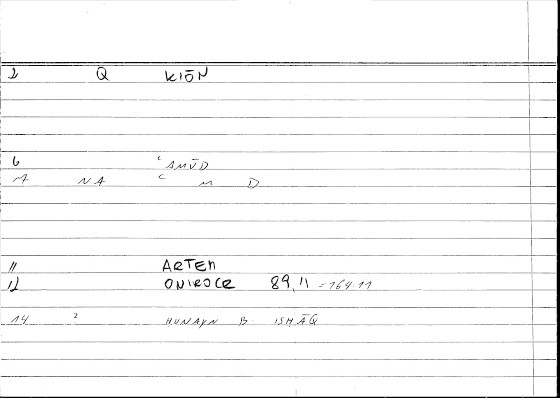 2 Q KIŌN
6 ʿAMŪD
M NA C M D
11 ARTEM
12 ONIROCR 89,11 =164.11
14 2 HUNAYN B ISHĀQ